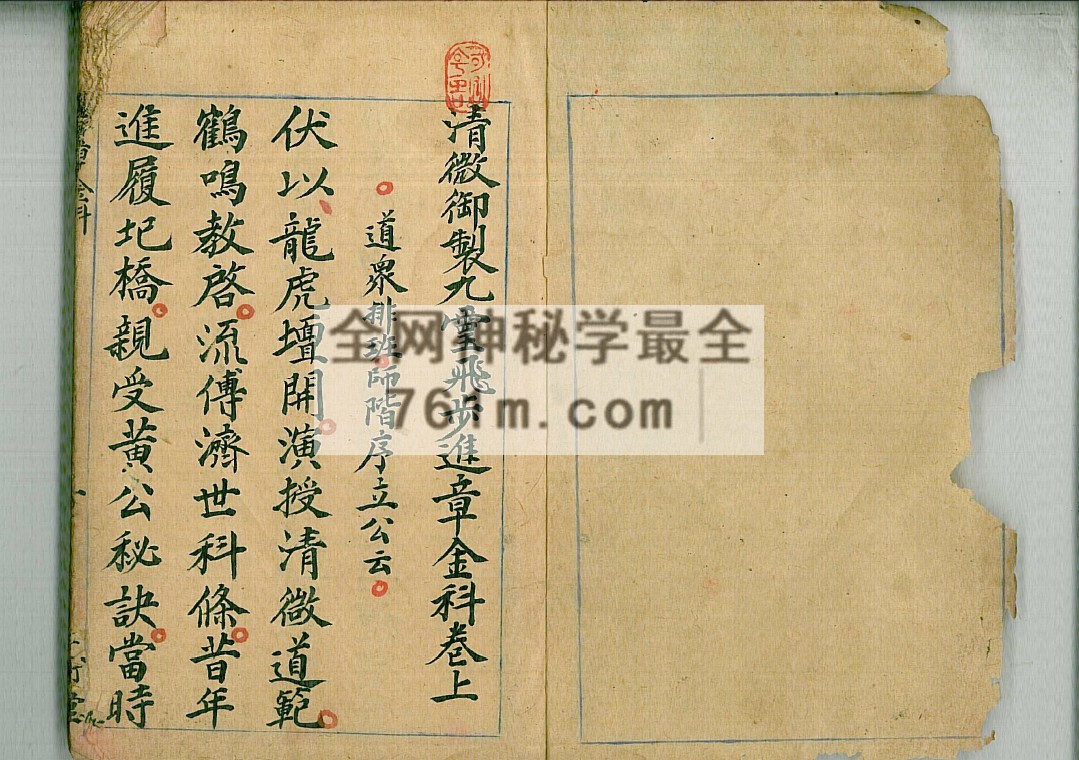 清微御製九雲飛步進章金科卷上
道衆排班師階序立公云
伏以龍虎壇開演授清微道範
鶴鳴教啓流傳濟世科條昔年
進履圯橋親受黃公秘訣當時
章金科
全网神秘学最全